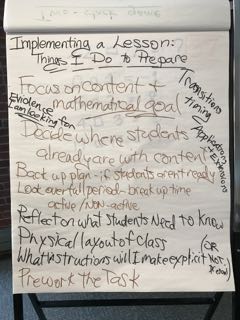 Implementing a Lesson:
Things I Do to Prepare
Focus on content &
mathematical goal
Transitions
timing
Evidence
I am looking for
Applications
+ Extensions
Decide where students
already are with content
Back up plan - if students aren't ready
Look over full period - break up time
active / non-active
Reflect on what students Need to know
Physical layout of class
What instructions will I make explicit (OR
NOT.
Prework the Task